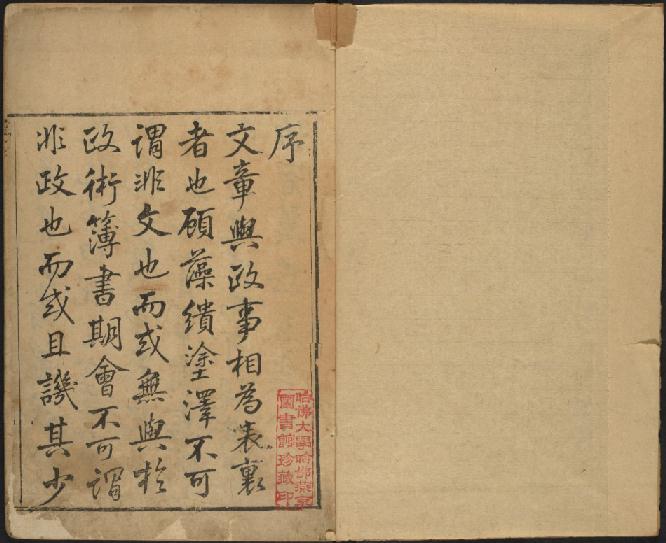 序
文章與政事相為表裏
者也顧藻繢塗澤不可
謂非文也而或無與於
政術簿書期會不可謂
非政也而或且譏其少
哈佛大學哈佛燕京
圖書館珍藏印